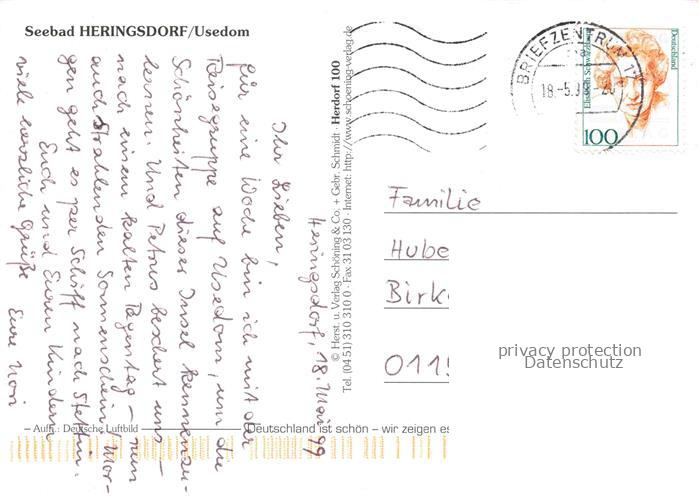 Seebad HERINGSDORF/Usedom
Heringsdorf, 18. Mai 99
Ihr Lieben,
für eine Woche bin ich mit der
Reisegruppe auf Usedom, um die
Schönheiten dieser Insel kennenzu-
lernen. Und Petrus beschert uns –
nach einem kalten Regentag – nun
auch strahlenden Sonnenschein. Mor-
gen geht es per Schiff nach Stettin.
Euch und Euren Kindern
viele herzliche Grüße Eure
– Aufn.: Deutsche Luftbild
© Herst. u. Verlag Schöning & Co. + Gebr. Schmidt · Herdorf 100
Tel. (04 51) 310 310 0 · Fax 31 03 130 · Internet: http://www.schoening-verlag.de
Deutschland ist schön – wir zeigen es
BRIEFZENTRUM
18.-5.99
Deutschland
100
Familie
Hube
Birk
011
privacy protection
Datenschutz